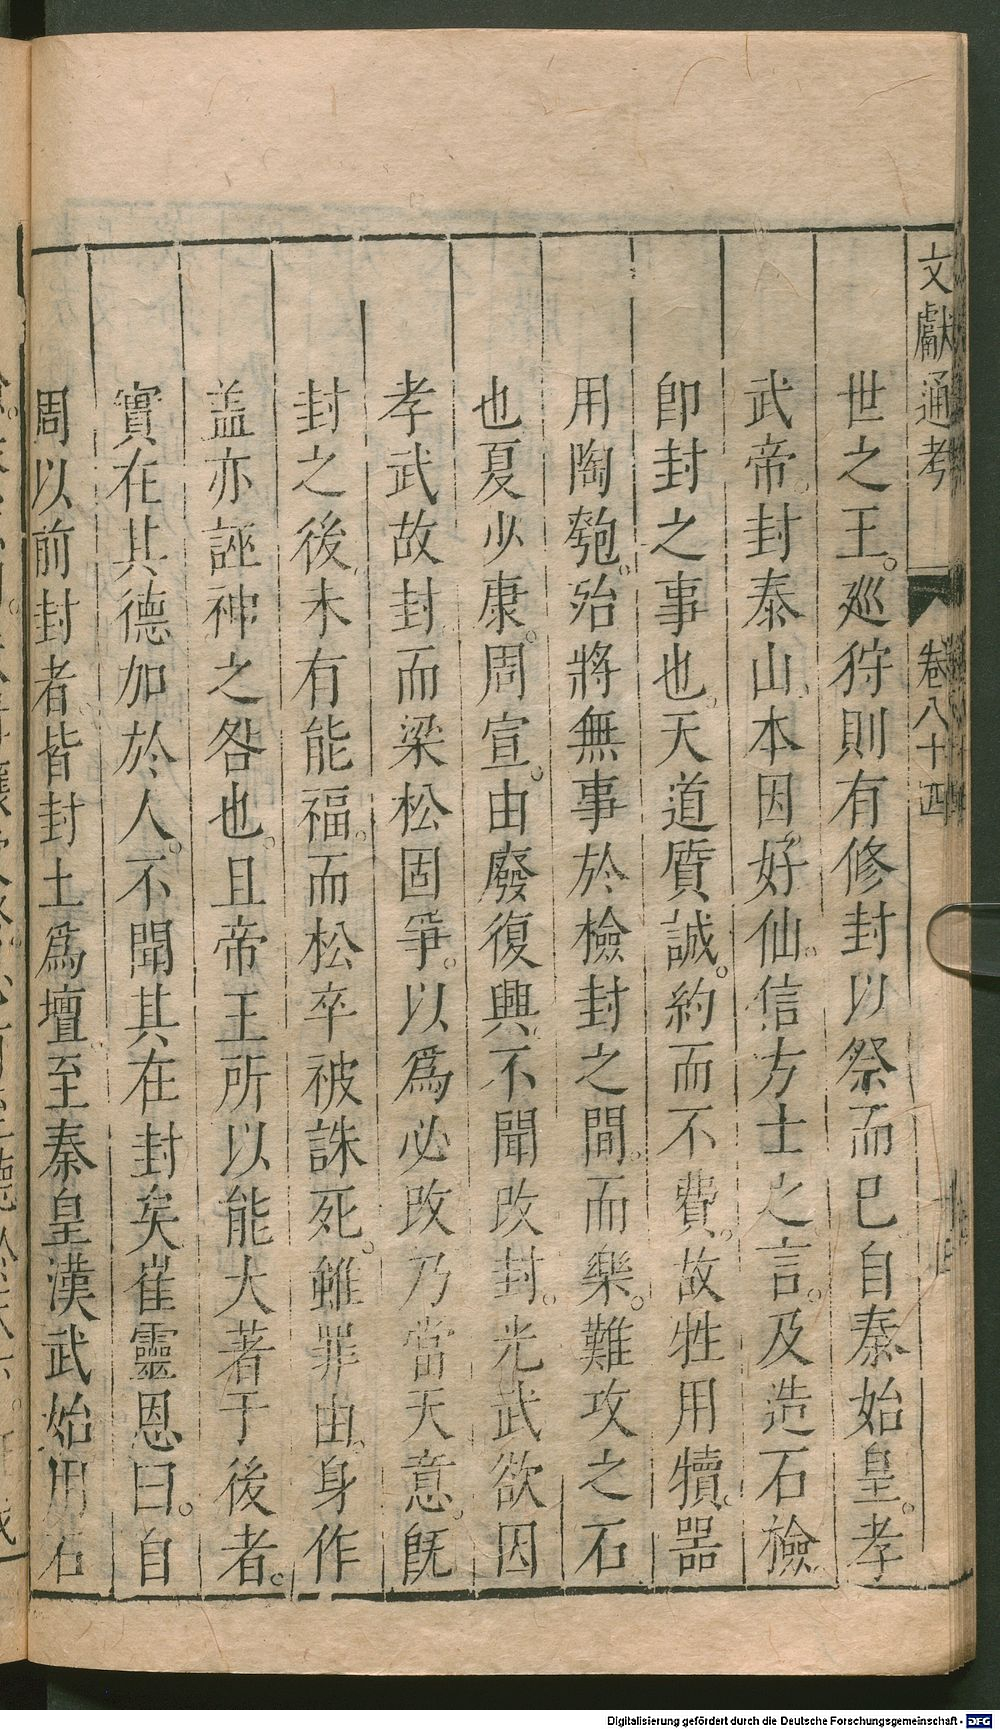 文獻通考
卷八十四
世之王。廵狩則有修封以祭而已自秦始皇。孝
武帝。封泰山。本因好仙。信方士之言。及造石檢
卽封之事也。天道質誠。約而不費。故牲用犢。器
用陶匏。殆將無事於檢封之間。而樂。難攻之石
也夏少康。周宣。由廢復興不聞改封。光武欲因
孝武故封而梁松固爭。以爲必改乃當天意。旣
封之後未有能福。而松卒被誅死。雖罪由。身作
盖亦誣神之咎也。且帝王所以能大著于後者。
實在其德加於人。不聞其在封矣崔靈恩曰。自
周以前封者皆封土爲壇至秦皇漢武始用石
Digitalisierung gefördert durch die Deutsche Forschungsgemeinschaft - DFG